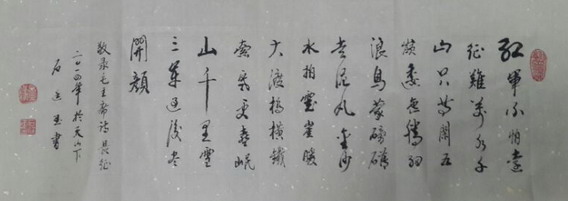 紅軍不怕遠
征難萬水千
山只等閒五
嶺逶迤騰細
浪烏蒙磅礴
走泥丸金沙
水拍雲崖暖
大渡橋橫鐵
索寒更喜岷
山千里雪
三軍過後盡
開顏
敬录毛主席诗長征
二〇一四年於天山下
書